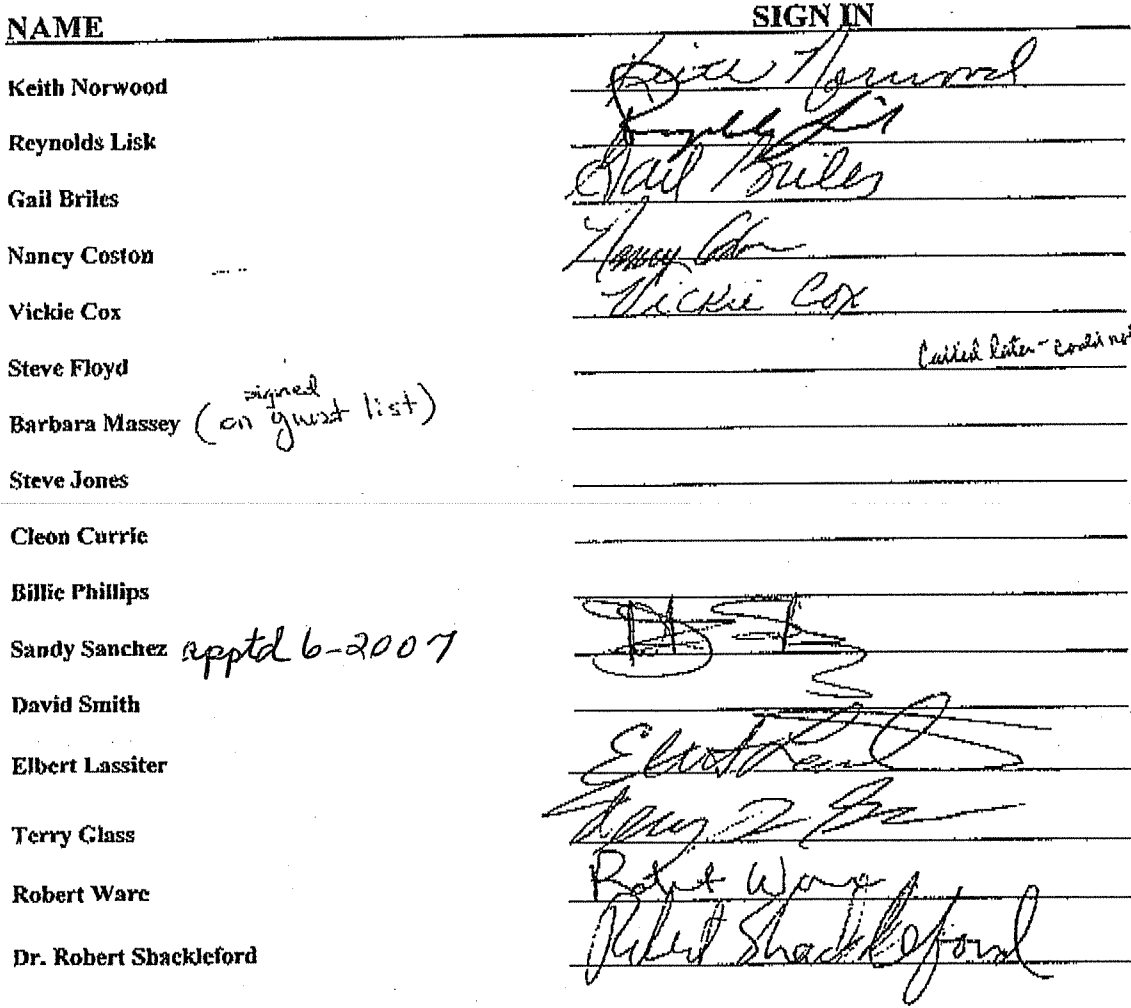 NAME SIGN IN
Keith Norwood Keith Norwood
Reynolds Lisk Reynolds Lisk
Gail Briles Gail Briles
Nancy Coston Nancy
Vickie Cox Vickie Cox
Steve Floyd Called later - could not
signed
Barbara Massey (on guest list)
Steve Jones
Cleon Currie
Billie Phillips
Sandy Sanchez apptd 6-2007
David Smith
Elbert Lassiter
Terry Glass Terry
Robert Ware Robert Ware
Dr. Robert Shackleford Robert Shackleford